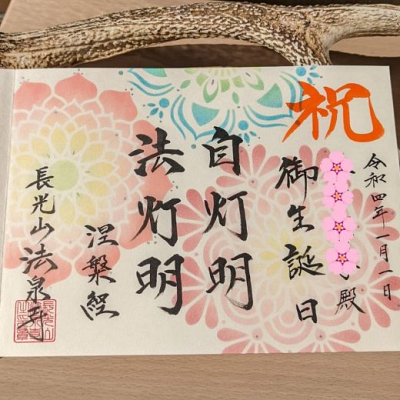 令和四年一月一日
殿
祝
御生誕日
自灯明
法灯明
涅槃経
長光山法泉寺